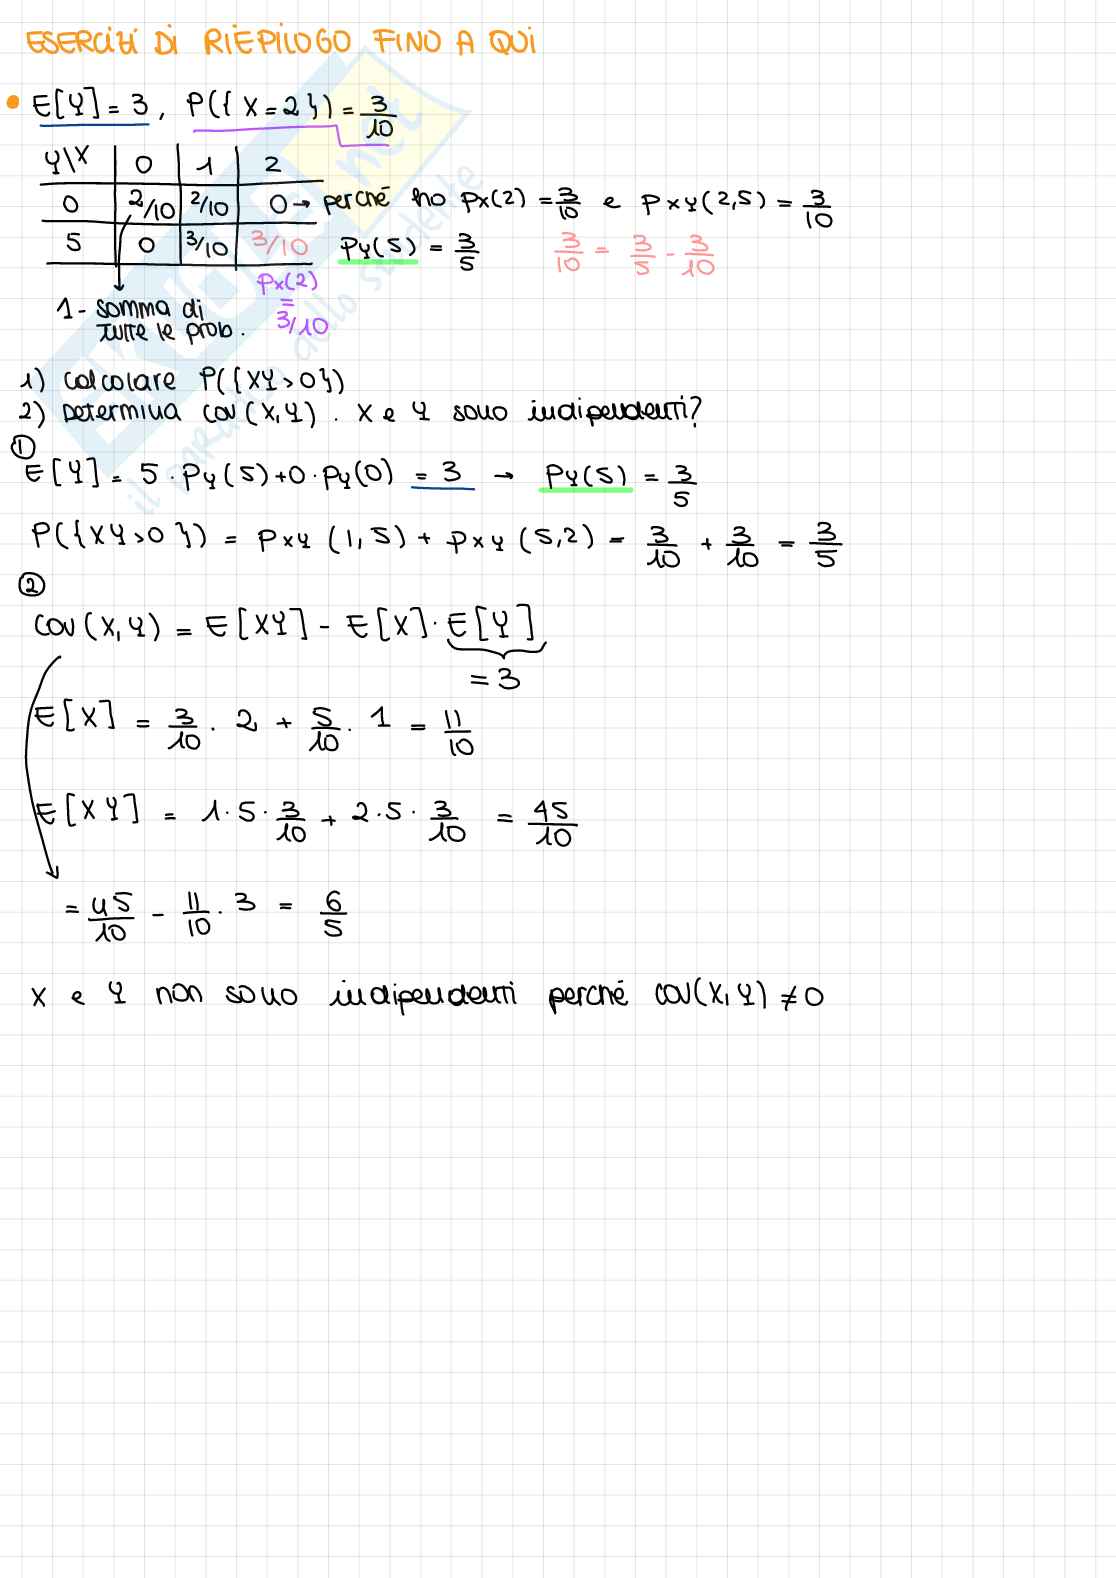 ESERCIZI DI RIEPILOGO FINO A QUI
• E[Y] = 3, P({X=2}) = 3/10
Y\X 0 1 2
0 2/10 2/10 0 → perché ho px(2) = 3/10 e pxy(2,5) = 3/10
5 0 3/10 3/10 py(5) = 3/5 3/10 = 3/5 - 3/10
px(2)
=
3/10
1 - somma di
tutte le prob.
1) calcolare P({XY>0})
2) Determina cov(X,Y). X e Y sono indipendenti?
①
E[Y] = 5·py(5)+0·py(0) = 3 → py(5) = 3/5
P({XY>0}) = pxy(1,5) + pxy(5,2) = 3/10 + 3/10 = 3/5
②
cov(X,Y) = E[XY] - E[X]·E[Y]
= 3
E[X] = 3/10 · 2 + 5/10 · 1 = 11/10
E[XY] = 1·5·3/10 + 2·5·3/10 = 45/10
= 45/10 - 11/10 · 3 = 6/5
X e Y non sono indipendenti perché cov(X,Y) ≠ 0